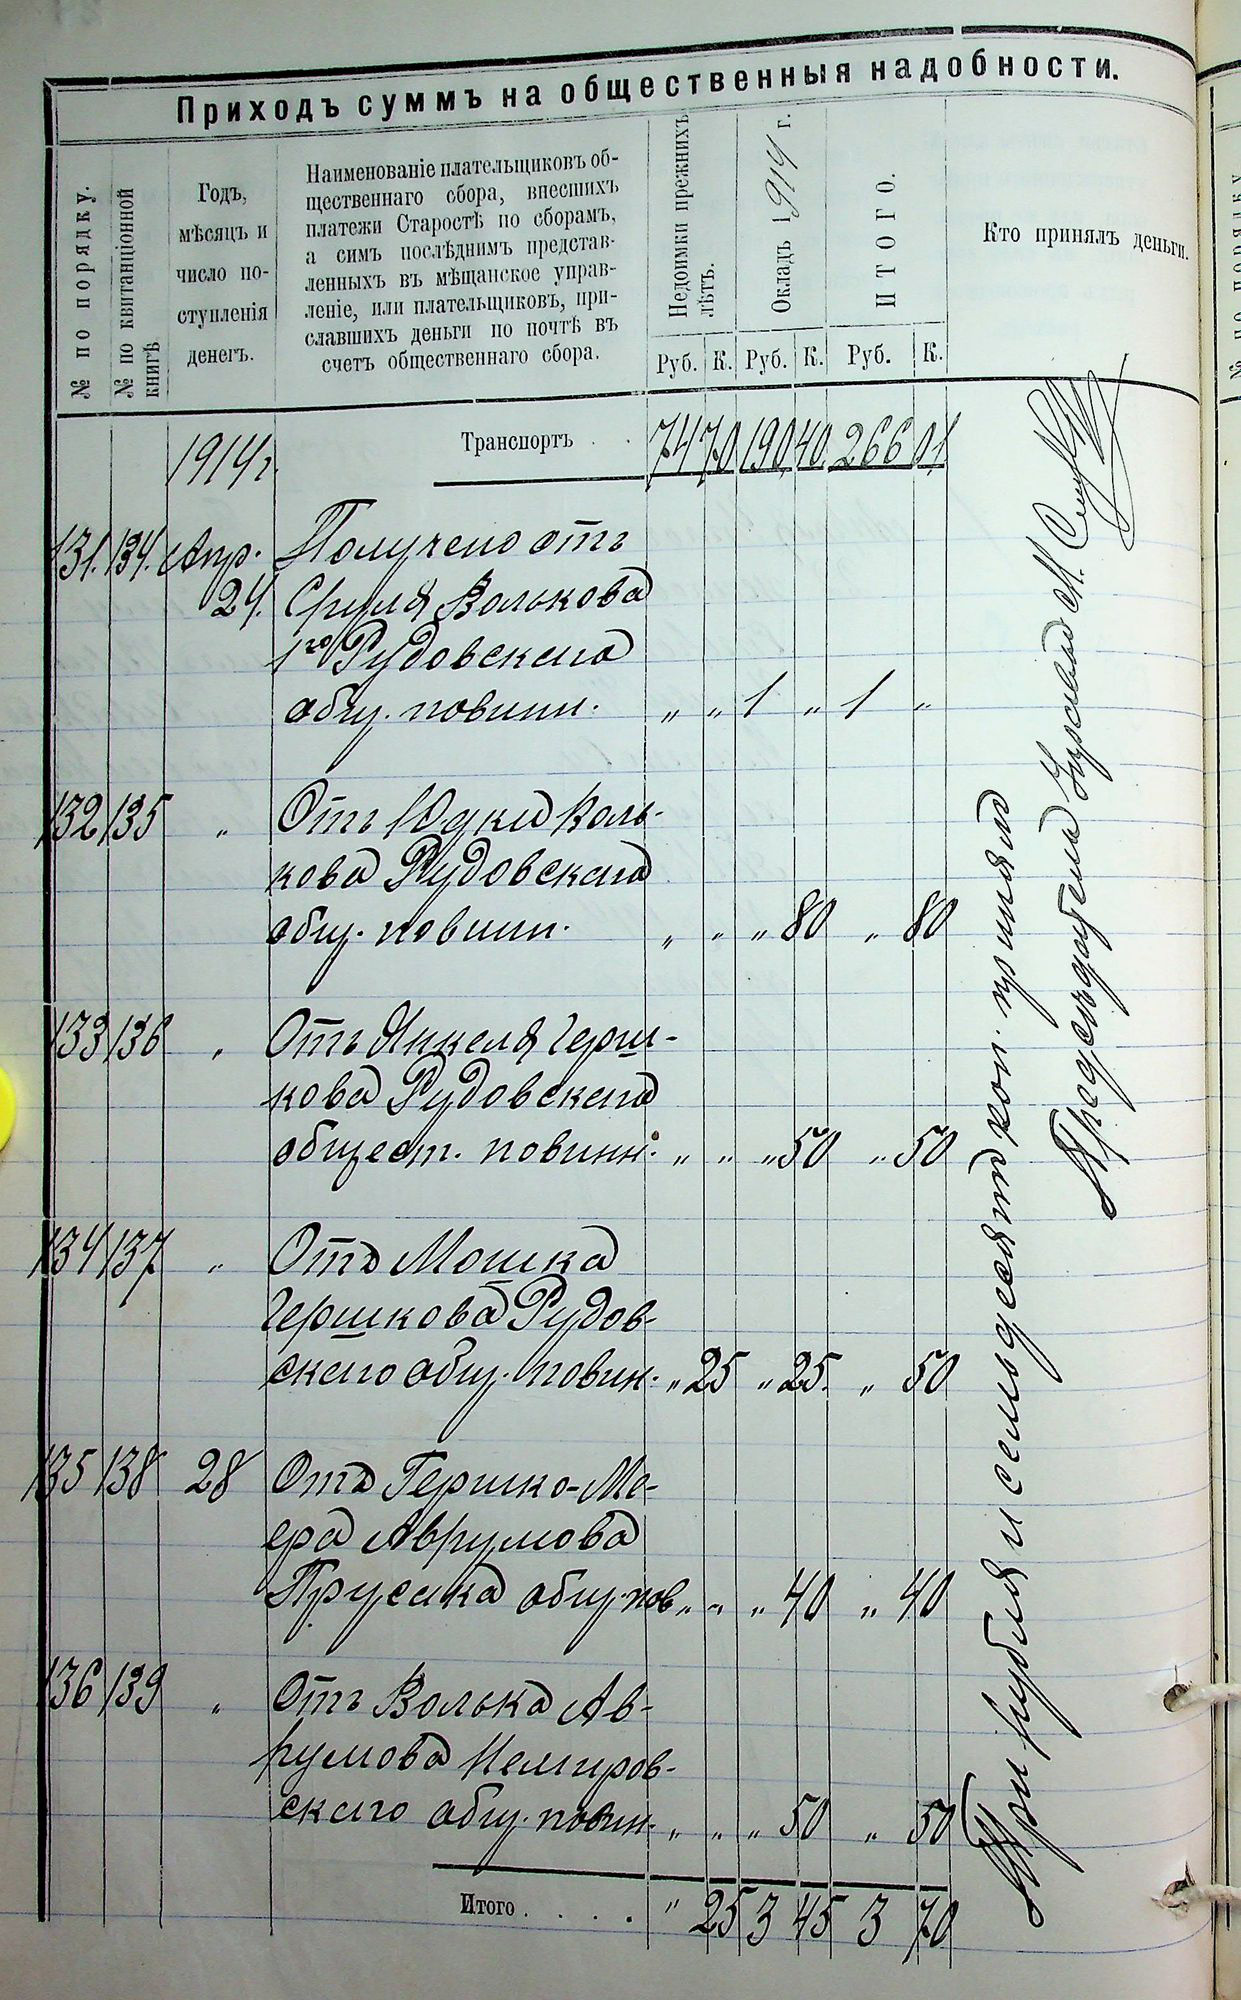 Приходъ суммъ на общественныя надобности.
№ по порядку.
№ по квитанціонной
книгѣ
Годъ,
мѣсяцъ и
число по-
ступленія
денегъ.
Наименованіе плательщиковъ об-
щественнаго сбора, внесшихъ
платежи Старостѣ по сборамъ,
а симъ послѣднимъ представ-
ленныхъ въ мѣщанское управ-
леніе, или плательщиковъ, при-
славшихъ деньги по почтѣ въ
счетъ общественнаго сбора.
Недоимки прежнихъ
лѣтъ.
Окладъ 1914 г.
ИТОГО.
Кто принялъ деньги.
Руб. К. Руб. К. Руб. К.
1914 г. Транспортъ . . 74 70 190 40 266 01
131. 134. Апр. Получено отъ
24. Сруля Волькова
1го Рудовскаго
общ. повинн. „ „ 1 „ 1 „
132 135 „ Отъ Юдки Воль-
кова Рудовскаго
общ. повинн. „ „ „ 80 „ 80
133 136 „ Отъ Янкеля Герш-
кова Рудовскаго
общест. повинн. „ „ „ 50 „ 50
134 137 „ Отъ Мошка
Гершкова Рудов-
скаго общ. повин. „ 25 „ 25. „ 50
135 138 28 Отъ Гершко-Ме-
ера Аврумова
Прусака общ. пов „ „ „ 40 „ 40
136 139 „ Отъ Волька Ав-
румова Немиров-
скаго общ. повин. „ „ „ 50 „ 50
Итого . . . . „ 25 3 45 3 70
Три рубля и семьдесят коп. принялъ
Предсѣдатель Управы М.